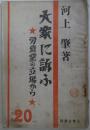 河上肇著
大衆に訴ふ
★労農党の立場から★
20